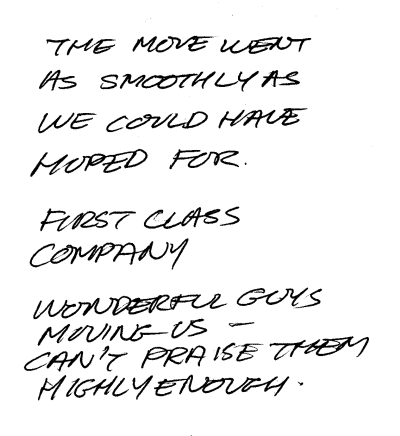 THE MOVE WENT
AS SMOOTHLY AS
WE COULD HAVE
HOPED FOR.
FIRST CLASS
COMPANY
WONDERFUL GUYS
MOVING US –
CAN'T PRAISE THEM
HIGHLY ENOUGH.